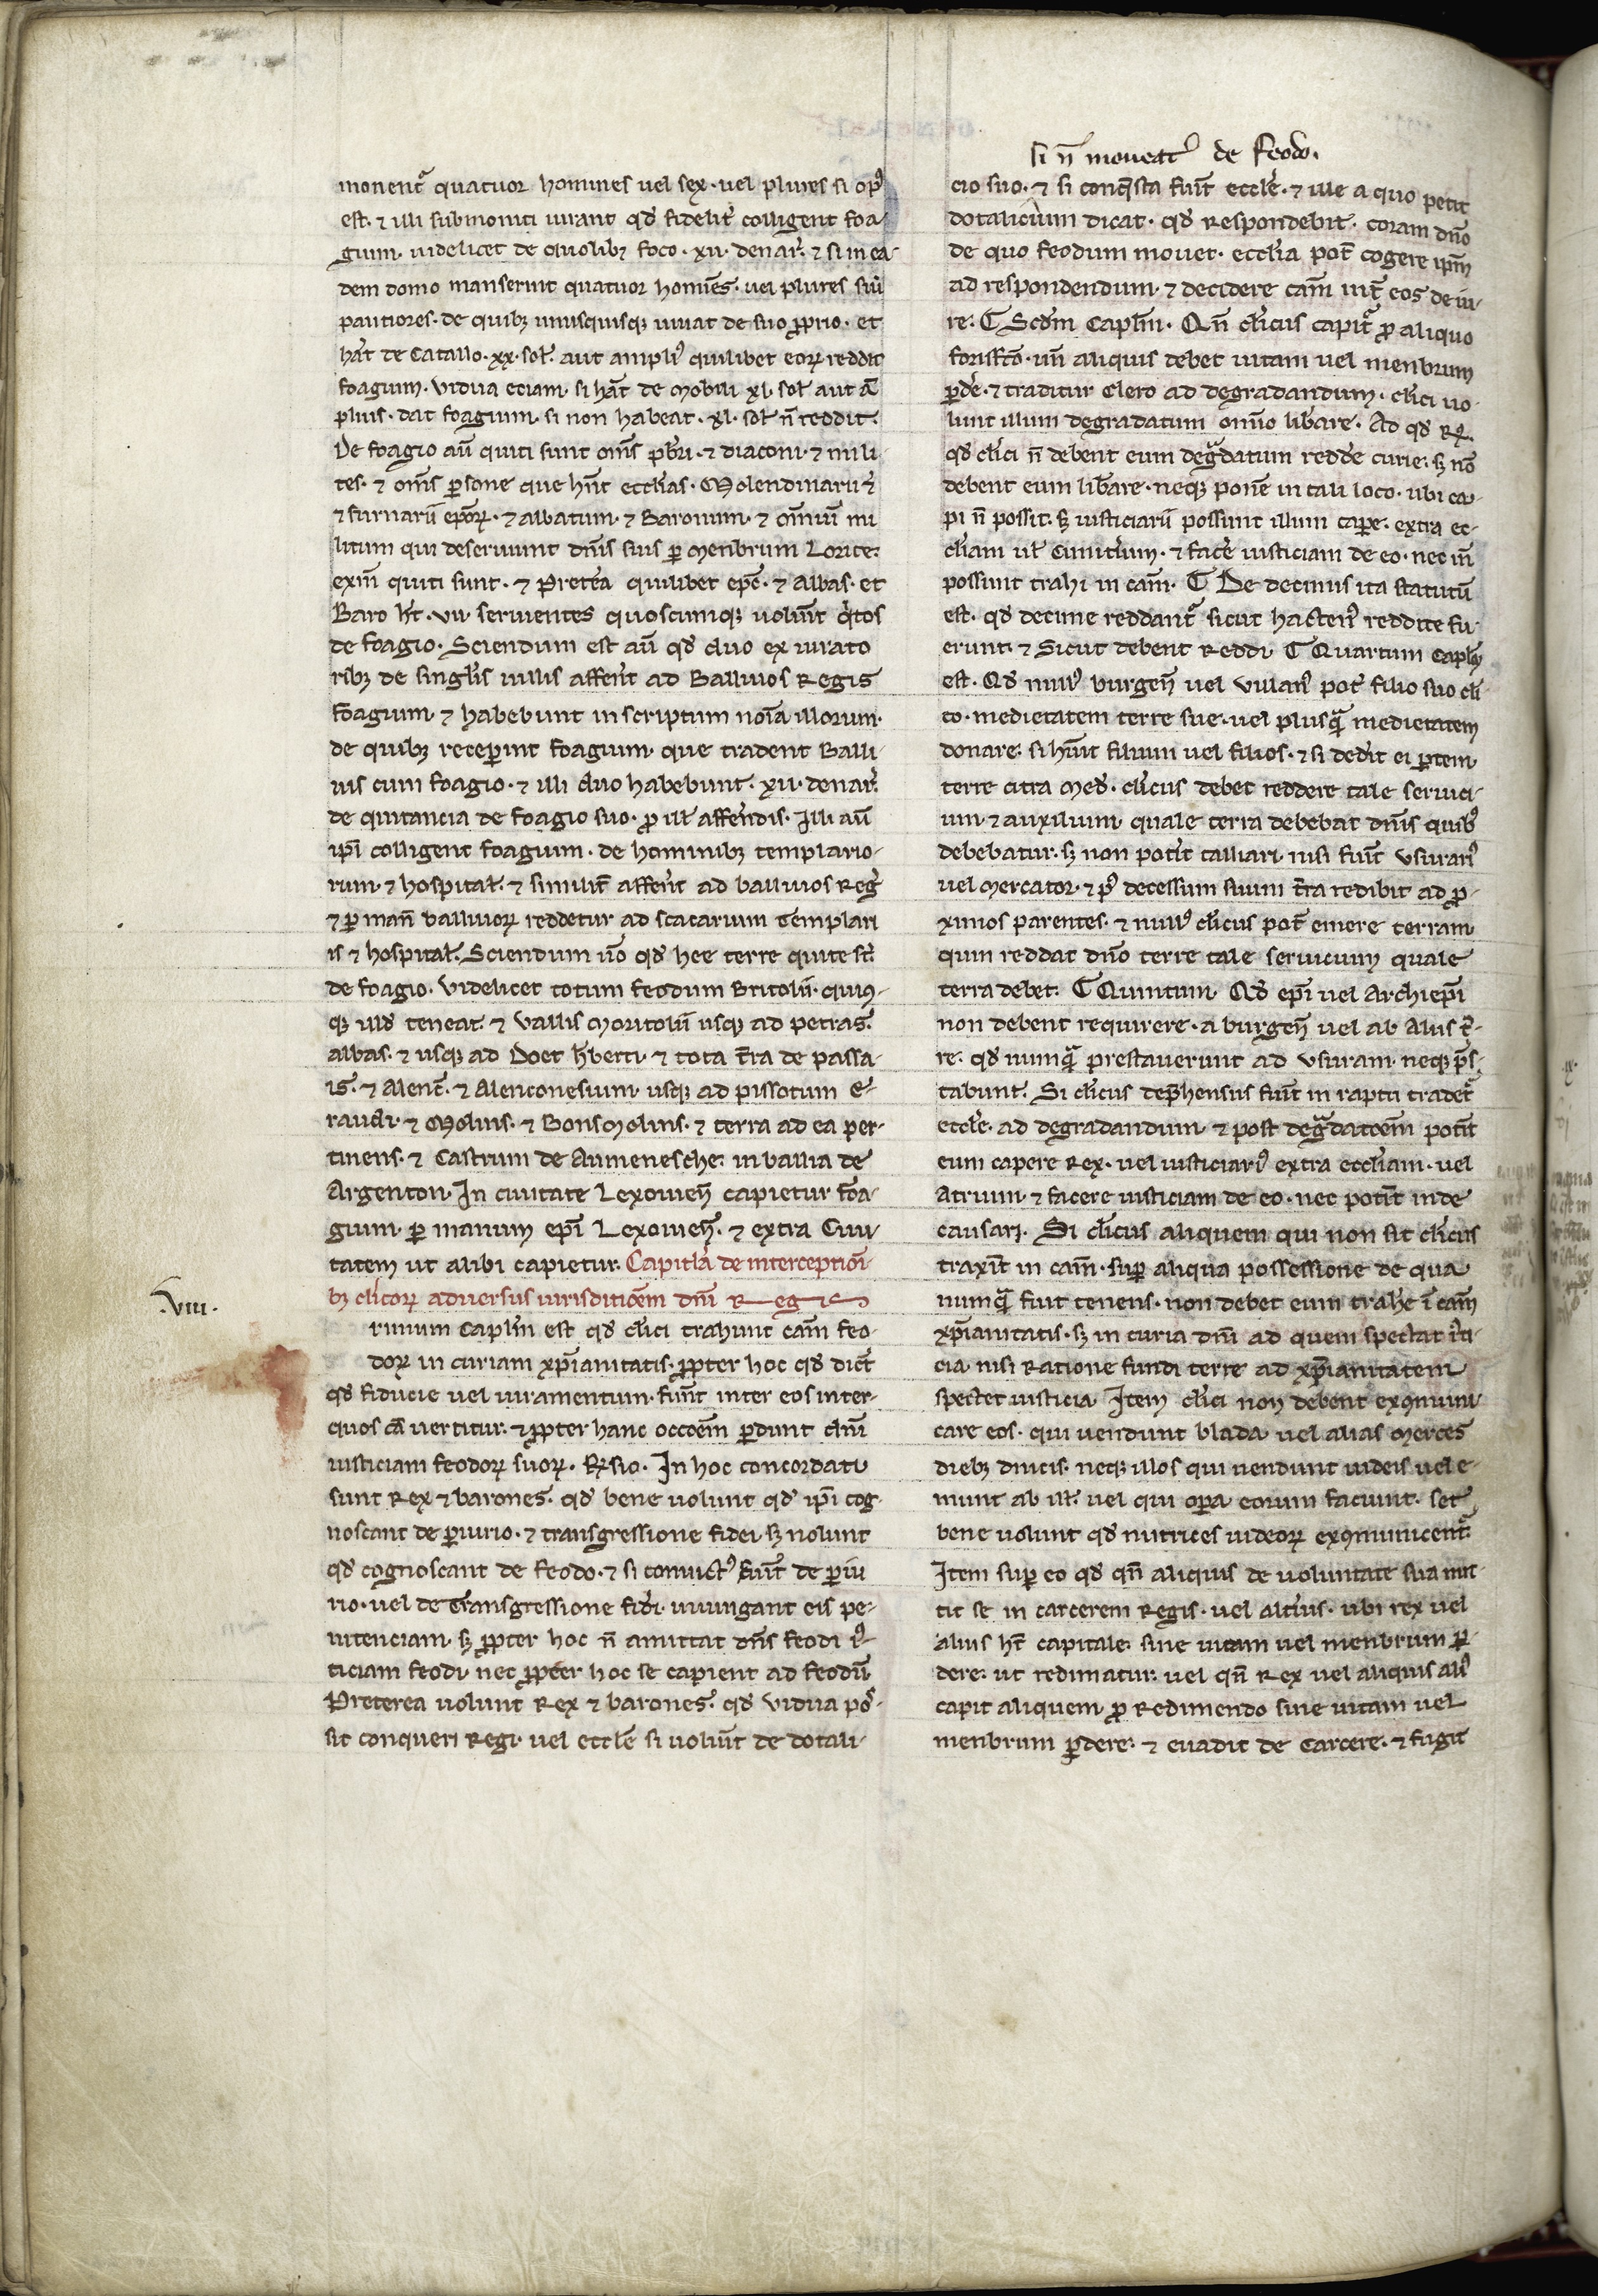 monent᷑ quatuor homines uel sex· uel plures si opꝰ
est· ⁊ illi submoniti iurant qđ fidelit̉ colligent foa-
gium· uidelicet de quolibꝫ foco· xii· denar̉· ⁊ si in ea-
dem domo manserint quatuor homines· uel plures siue
pautiores· de quibꝫ unusquisqꝫ uiuat de suo ꝓprio· et
hat de Catallo· xx· sol̉ aut ampliꝰ quilibet eorꝝ reddit
foagium· Vidua eciam· si hāt de Mobili xl· sol̉ aut ā
plius· dat foagium· si non habeat· xl· sol̉ n̄ reddit·
De foagio aū quiti sunt om̄s pb̄ri· ⁊ diaconi· ⁊ mili
tes· ⁊ om̄s ꝑsone que hn̄t eccłias· Molendinarii
⁊ furnarii ep̄orꝝ· ⁊ abbatum· ⁊ Baronum· ⁊ om̄iū mi
litum qui deseruiunt dn̄is suis ꝑ menbrum Lorice·
exin̄ quiti sunt· ⁊ Pretea quilibet ep̄c· ⁊ Abbas· et
Baro h̄t· vii· seruientes quoscumqꝫ uolūt q̉tos
de foagio· Sciendum est aū qđ duo ex iurato
ribꝫ de singl̉is uillis affer̉nt ad Balliuos Regis
foagium· ⁊ habebunt in scriptum noīa illorum·
de quibꝫ receper̉int foagium· que tradent Balli-
uis cum foagio· ⁊ illi duo habebunt· xii· denar̉·
de quitancia de foagio suo· ꝓ iłł afferendis· Illi aū
ip̄i colligent foagium· de hominibꝫ templario-
rum· ⁊ hospital̉· ⁊ similit̉ affer̉nt ad balliuos Reg̉
⁊ ꝑ man̄ balliuorꝝ reddetur ad scacarium Templari
is ⁊ hospital̉· Sciendum ū̉o qđ hee terre quite st̄
de foagio· Videlicet totum feodum Britolii· quicūꝫ-
qꝫ illđ teneat· ⁊ Vallis Moritolii usqꝫ ad petras
albas· ⁊ usqꝫ ad Doet hb̉erti· ⁊ tota t̄ra de passa-
is· ⁊ Alenc̄· ⁊ Alenconesium· usqꝫ ad pissotum E-
raudi· ⁊ Molins· ⁊ BonsMolins· ⁊ terra ad ea per-
tinens· ⁊ Castrum de Aumenesche· in ballia de
Argenton· In ciuitate Lexouien̄ capietur foa-
gium· ꝑ manum ep̄i Lexouien̄· ⁊ extra Ciui-
tatem ut alibi capietur· Capitl̉a de interceptioni-
bꝫ cl̉icorꝝ aduersus iurisditio̅em dn̄i Regis
·Viii·
rimum Capłm est qđ cl̉ici trahunt cam̄ feo-
dorꝝ in curiam xp̄ianitatis· ꝓpter hoc qđ dic̄t
qđ fiducie uel iuramentum· fūit inter eos inter-
quos cā uertitur· ⁊ ꝓpter hanc occōem ꝑdunt dn̄i
iusticiam feodorꝝ suorꝝ· Rn̄sio· In hoc concordati
sunt Rex ⁊ barones· qđ bene uolunt qđ ip̄i cog-
noscant de ꝑiurio· ⁊ transgressione fidei sꝫ nolunt
qđ cognoscant de feodo· ⁊ si conuictꝰ fūit de ꝑiu
rio· uel de Transgressione fidei· iniungant eis pe-
nitenciam· sꝫ ꝓpter hoc n̄ amittat dn̄s feodi iꝰ-
ticiam feodi· nec ꝓpter hoc se capient ad feodū
Preterea uolunt Rex ⁊ barones· qđ Vidua pos̉-
sit conqueri Regi· uel eccłie si uolūit de dotali-
si n̄ moueat᷑ de feodo·
cio suo· ⁊ si conq̉sta fūit eccłie· ⁊ ille a quo petit
dotalicium dicat· qđ Respondebit· coram dn̄o
de quo feodum mouet· eccłia pot̄ cogere ip̄m
ad respondendum· ⁊ decidere cam̄ int̉ eos de iu-
re· ¶ Scđm Capłm· Qn̄ cl̉icus capit᷑ ꝓ aliquo
forisfcō· uñ aliquis debet uitam uel menbrum
ꝑđe· ⁊ traditur Clero ad degradandum· cl̉ici uo-
lunt illum degradatum omīo liberare· Ad qđ Rꝝ·
qđ cl̉ici n̄ debent eum degᷓdatum redde curie· sꝫ nō
debent eum lib̉are· neqꝫ pon̉e in tali loco· ubi ca-
pi n̄ possit· sꝫ iusticiarii possunt illum cape· extra ec-
cl̉iam ul̉ cimit̉ium· ⁊ face iusticiam de eo· nec in̄
possunt trahi in cam̄· ¶ De decimis ita statutū
est· qđ decime reddant᷑ sicut hactenꝰ reddite fu-
erunt· ⁊ Sicut debent Reddi· ¶ Quartum Capłm
est· Qđ nullꝰ burgen̄ uel Villanꝰ pot̄ filio suo cl̉i-
co· medietatem terre sue· uel plusq̄ᷓ medietatem
donare· si hūit filium uel filios· ⁊ si dedit ei ꝑtem
terre citra med̉· cl̉icus debet reddere tale serui-
um· ⁊ auxilium quale terra debebat dn̄is quibꝰ
debebatur· sꝫ non pot̉it talliari· nisi fūit Vsurariꝰ
uel Mercator· ⁊ pꝰ decessum suum t̄ra redibit ad ꝓ-
ximos parentes· ⁊ nullꝰ cl̉icus pot̄ emere terram
quin reddat dn̄o terre tale seruicium quale
terra debet· ¶ Quintum· Qđ ep̄i uel Archiep̄i
non debent requirere· a burgen̄ uel ab Aliis
re· qđ numq̄ᷓ prestauerunt ad Vsuram· neqꝫ p̄s-
tabunt· Si cl̉icus dep̄hensus fūit in raptu tradet᷑
eccłie· ad degradandum· ⁊ post degᷓdatōem pot̉it
eum capere Rex· uel iusticiariꝰ extra eccłiam· uel
Atrium· ⁊ facere iusticiam de eo· nec pot̉it inde
causari· Si cl̉icus aliquem qui non sit cl̉icus
traxit̉ in cam̄· suꝑ aliqua possessione de qua
numq̄ᷓ fuit tenens· non debet eum trah̉e ī cam̄
xp̄ianitatis· sꝫ in curia dn̄i ad quem spectat
cia nisi Ratione fundi terre ad xp̄ianitatem
spectet iusticia· Item cl̉ici non debent exꝯmuni
care eos· qui uendunt blada· uel alias merces
diebꝫ dn̄icis· neqꝫ illos qui uendunt iudeis uel e-
munt ab iłł· uel qui oꝑa eorum faciunt· set
bene uolunt qđ nutrices iudeorꝝ exꝯmunicent᷑
Item suꝑ eo qđ qn̄ aliquis de uoluntate sua mit-
tit se in carcerem Regis· uel alt̉ius· ubi rex uel
alius h̄t capitale· siue uitam uel menbrum ꝑ-
dere· ut redimatur· uel qn̄ Rex uel aliquis aliꝰ
capit aliquem ꝓ Redimendo siue uitam uel
menbrum ꝑdere· ⁊ euadit de Carcere· ⁊ fugit